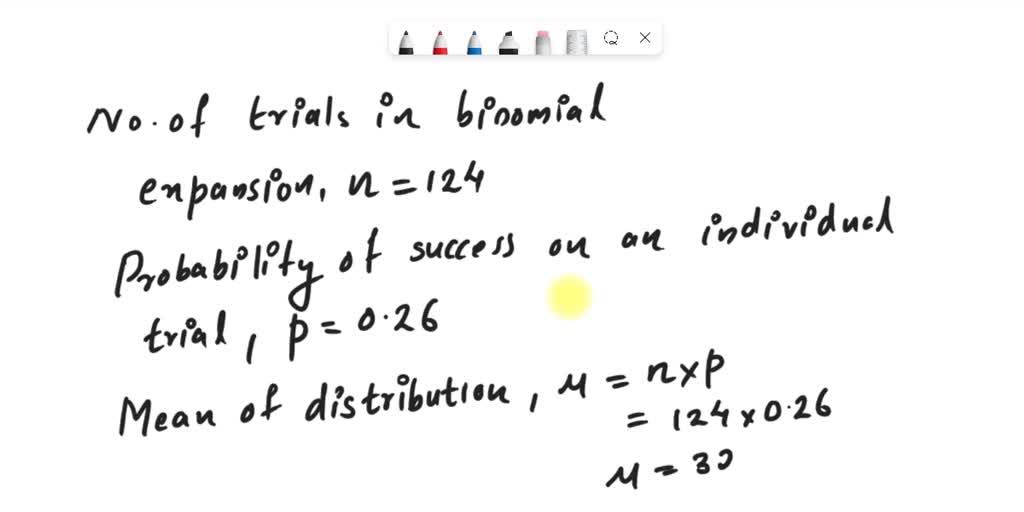 No. of trials in binomial
expansion, n = 124
Probability of success on an individual
trial, p = 0.26
Mean of distribution, μ = n × p
= 124 × 0.26
μ = 32